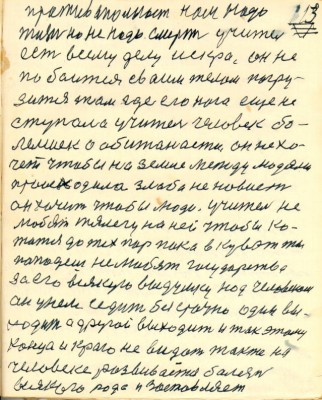 13
против нам надо
но не надо смерт учител
ест всему делу искра, он не
побоится своим телом погру-
зится там где его нога еще не
ступала учител человек бо-
леющие о обитаности он не хо-
чет чтобы на земле между людями
происходила злоба неновист
он хочит чтобы люди. Учител не
любят телегу на ней чтобы ка-
татся до тех пор пока в кувэт ты
попадеш не любят государства
за его всякую выдумку над человеком
он у нем седит бессрочно один вы-
ходит а другой выходит и так этому
конца и краю не видат также на
человеке развивается болезн
всякого рода и заставляет